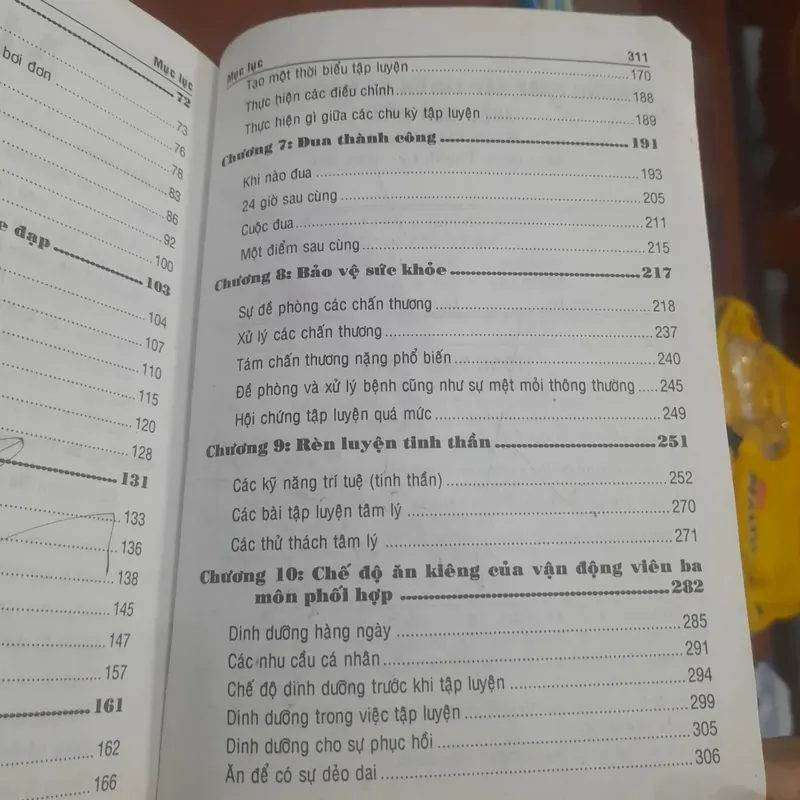 Mục lục
bơi đơn
72
73
76
78
83
86
92
100
đạp 103
104
107
110
115
120
128
131
133
136
138
145
147
157
161
162
166
Mục lục 311
Tạo một thời biểu tập luyện 170
Thực hiện các điều chỉnh 188
Thực hiện gì giữa các chu kỳ tập luyện 189
Chương 7: Đua thành công 191
Khi nào đua 193
24 giờ sau cùng 205
Cuộc đua 211
Một điểm sau cùng 215
Chương 8: Bảo vệ sức khỏe 217
Sự đề phòng các chấn thương 218
Xử lý các chấn thương 237
Tám chấn thương nặng phổ biến 240
Đề phòng và xử lý bệnh cũng như sự mệt mỏi thông thường 245
Hội chứng tập luyện quá mức 249
Chương 9: Rèn luyện tinh thần 251
Các kỹ năng trí tuệ (tinh thần) 252
Các bài tập luyện tâm lý 270
Các thử thách tâm lý 271
Chương 10: Chế độ ăn kiêng của vận động viên ba
môn phối hợp 282
Dinh dưỡng hàng ngày 285
Các nhu cầu cá nhân 291
Chế độ dinh dưỡng trước khi tập luyện 294
Dinh dưỡng trong việc tập luyện 299
Dinh dưỡng cho sự phục hồi 305
Ăn để có sự dẻo dai 306